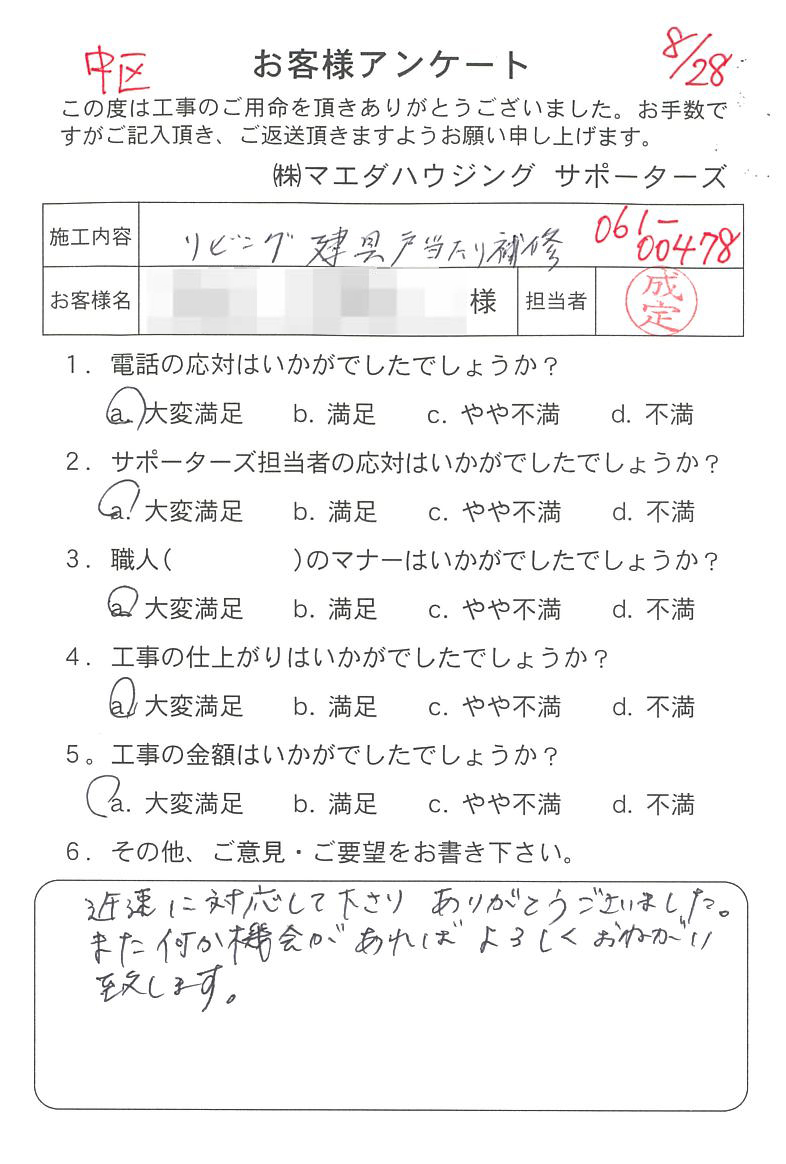 中区
お客様アンケート
8/28
この度は工事のご用命を頂きありがとうございました。お手数で
すがご記入頂き、ご返送頂きますようお願い申し上げます。
㈱マエダハウジング サポーターズ
施工内容 リビング建具戸当たり補修
061-
00478
お客様名 様 担当者 成定
1. 電話の応対はいかがでしたでしょうか?
a. 大変満足 b. 満足 c. やや不満 d. 不満
2. サポーターズ担当者の応対はいかがでしたでしょうか?
a. 大変満足 b. 満足 c. やや不満 d. 不満
3. 職人( )のマナーはいかがでしたでしょうか?
a. 大変満足 b. 満足 c. やや不満 d. 不満
4. 工事の仕上がりはいかがでしたでしょうか?
a. 大変満足 b. 満足 c. やや不満 d. 不満
5。工事の金額はいかがでしたでしょうか?
a. 大変満足 b. 満足 c. やや不満 d. 不満
6. その他、ご意見・ご要望をお書き下さい。
迅速に対応して下さり ありがとうございました。
また何か機会があれば よろしく おねがい
致します。